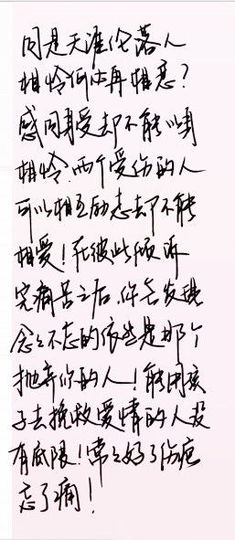 同是天涯伦落人
相怜何必再相恋？
感同身受却不能以为
相怜.两个受伤的人
可以相互励志却不能
相爱！在彼此倾诉
完痛苦之后,你会发现
念念不忘的依然是那个
抛弃你的人！能用孩
子去挽救爱情的人没
有底限！常常好了伤疤
忘了痛！